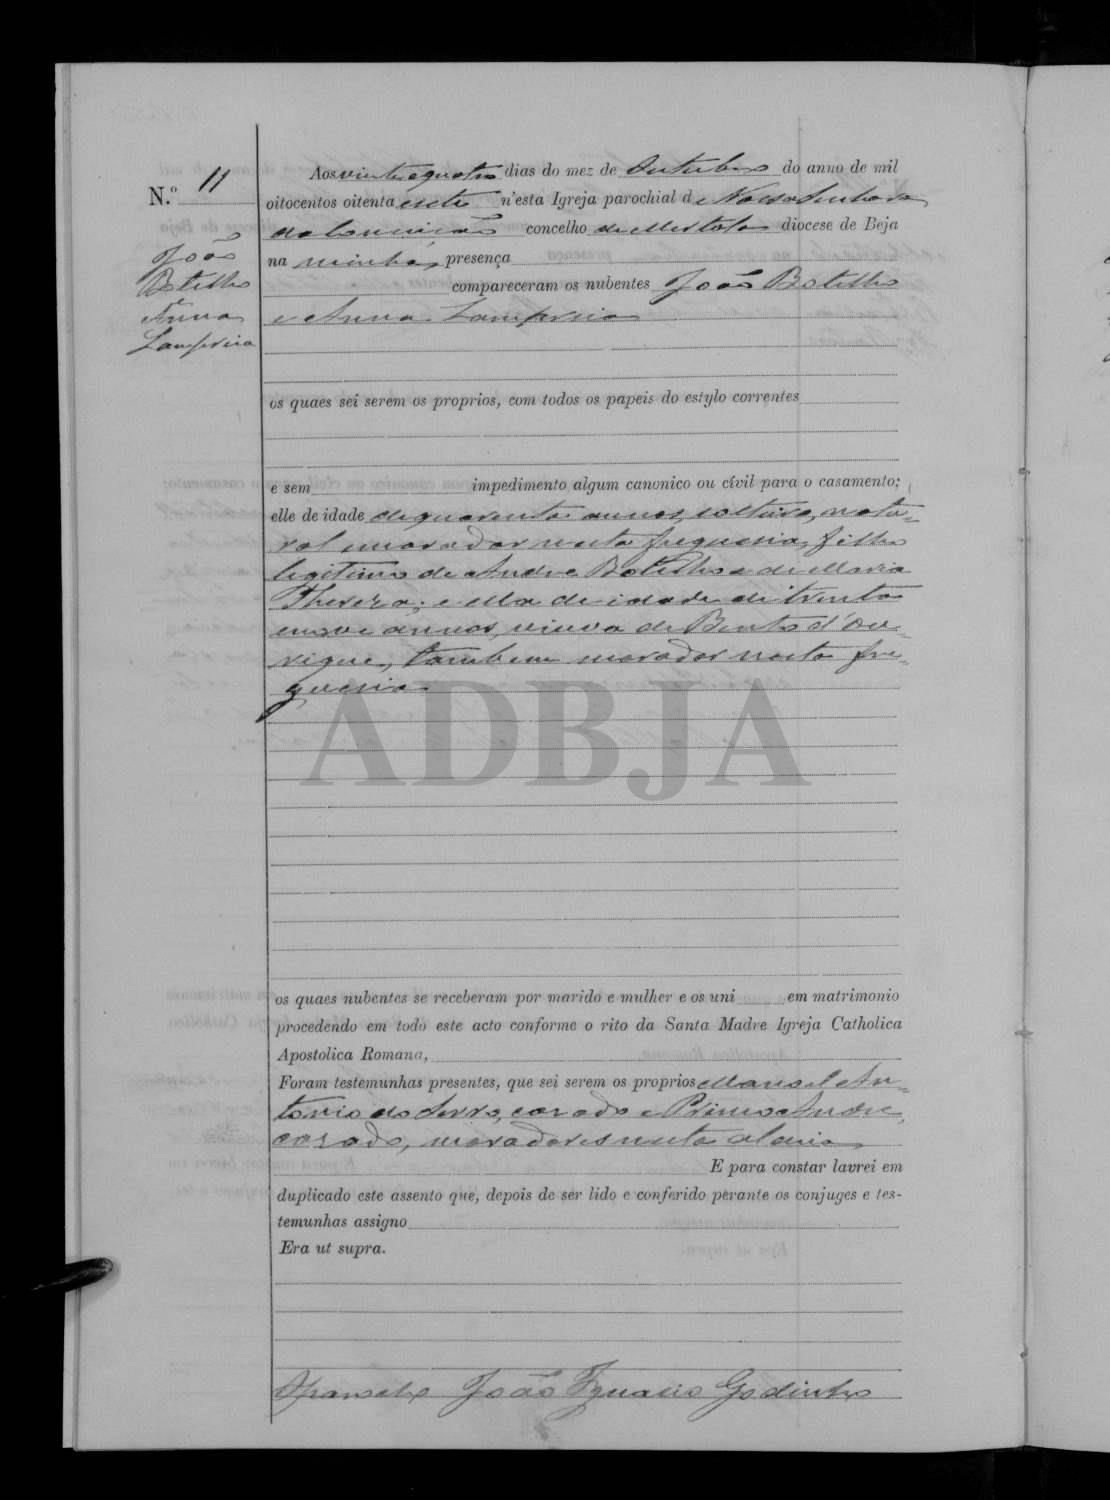 N.º 11
João
Botelho
e Anna
Lampreia
Aos vinte e quatro dias do mez de Outubro do anno de mil
oitocentos oitenta e sete n'esta Igreja parochial de Nossa Senhora
da Conceição concelho de Mertola diocese de Beja
na minha presença
compareceram os nubentes João Botelho
e Anna Lampreia
os quaes sei serem os proprios, com todos os papeis do estylo correntes
e sem impedimento algum canonico ou civil para o casamento;
elle de idade de quarenta annos, solteiro, natu-
ral e morador nesta freguesia, filho
legitimo de Andre Botelho e de Maria
Thereza; e ella de idade de trinta
e nove annos, viuva de Bento d'Ou-
rique, tambem morador nesta fre-
guesia
ADBJA
os quaes nubentes se receberam por marido e mulher e os uni em matrimonio
procedendo em todo este acto conforme o rito da Santa Madre Igreja Catholica
Apostolica Romana,
Foram testemunhas presentes, que sei serem os proprios Manoel An-
tonio do Serro, casado e Primo Andre,
casado, moradores nesta aldeia
E para constar lavrei em
duplicado este assento que, depois de ser lido e conferido perante os conjuges e tes-
temunhas assigno
Era ut supra.
O parocho João Ignacio Godinho